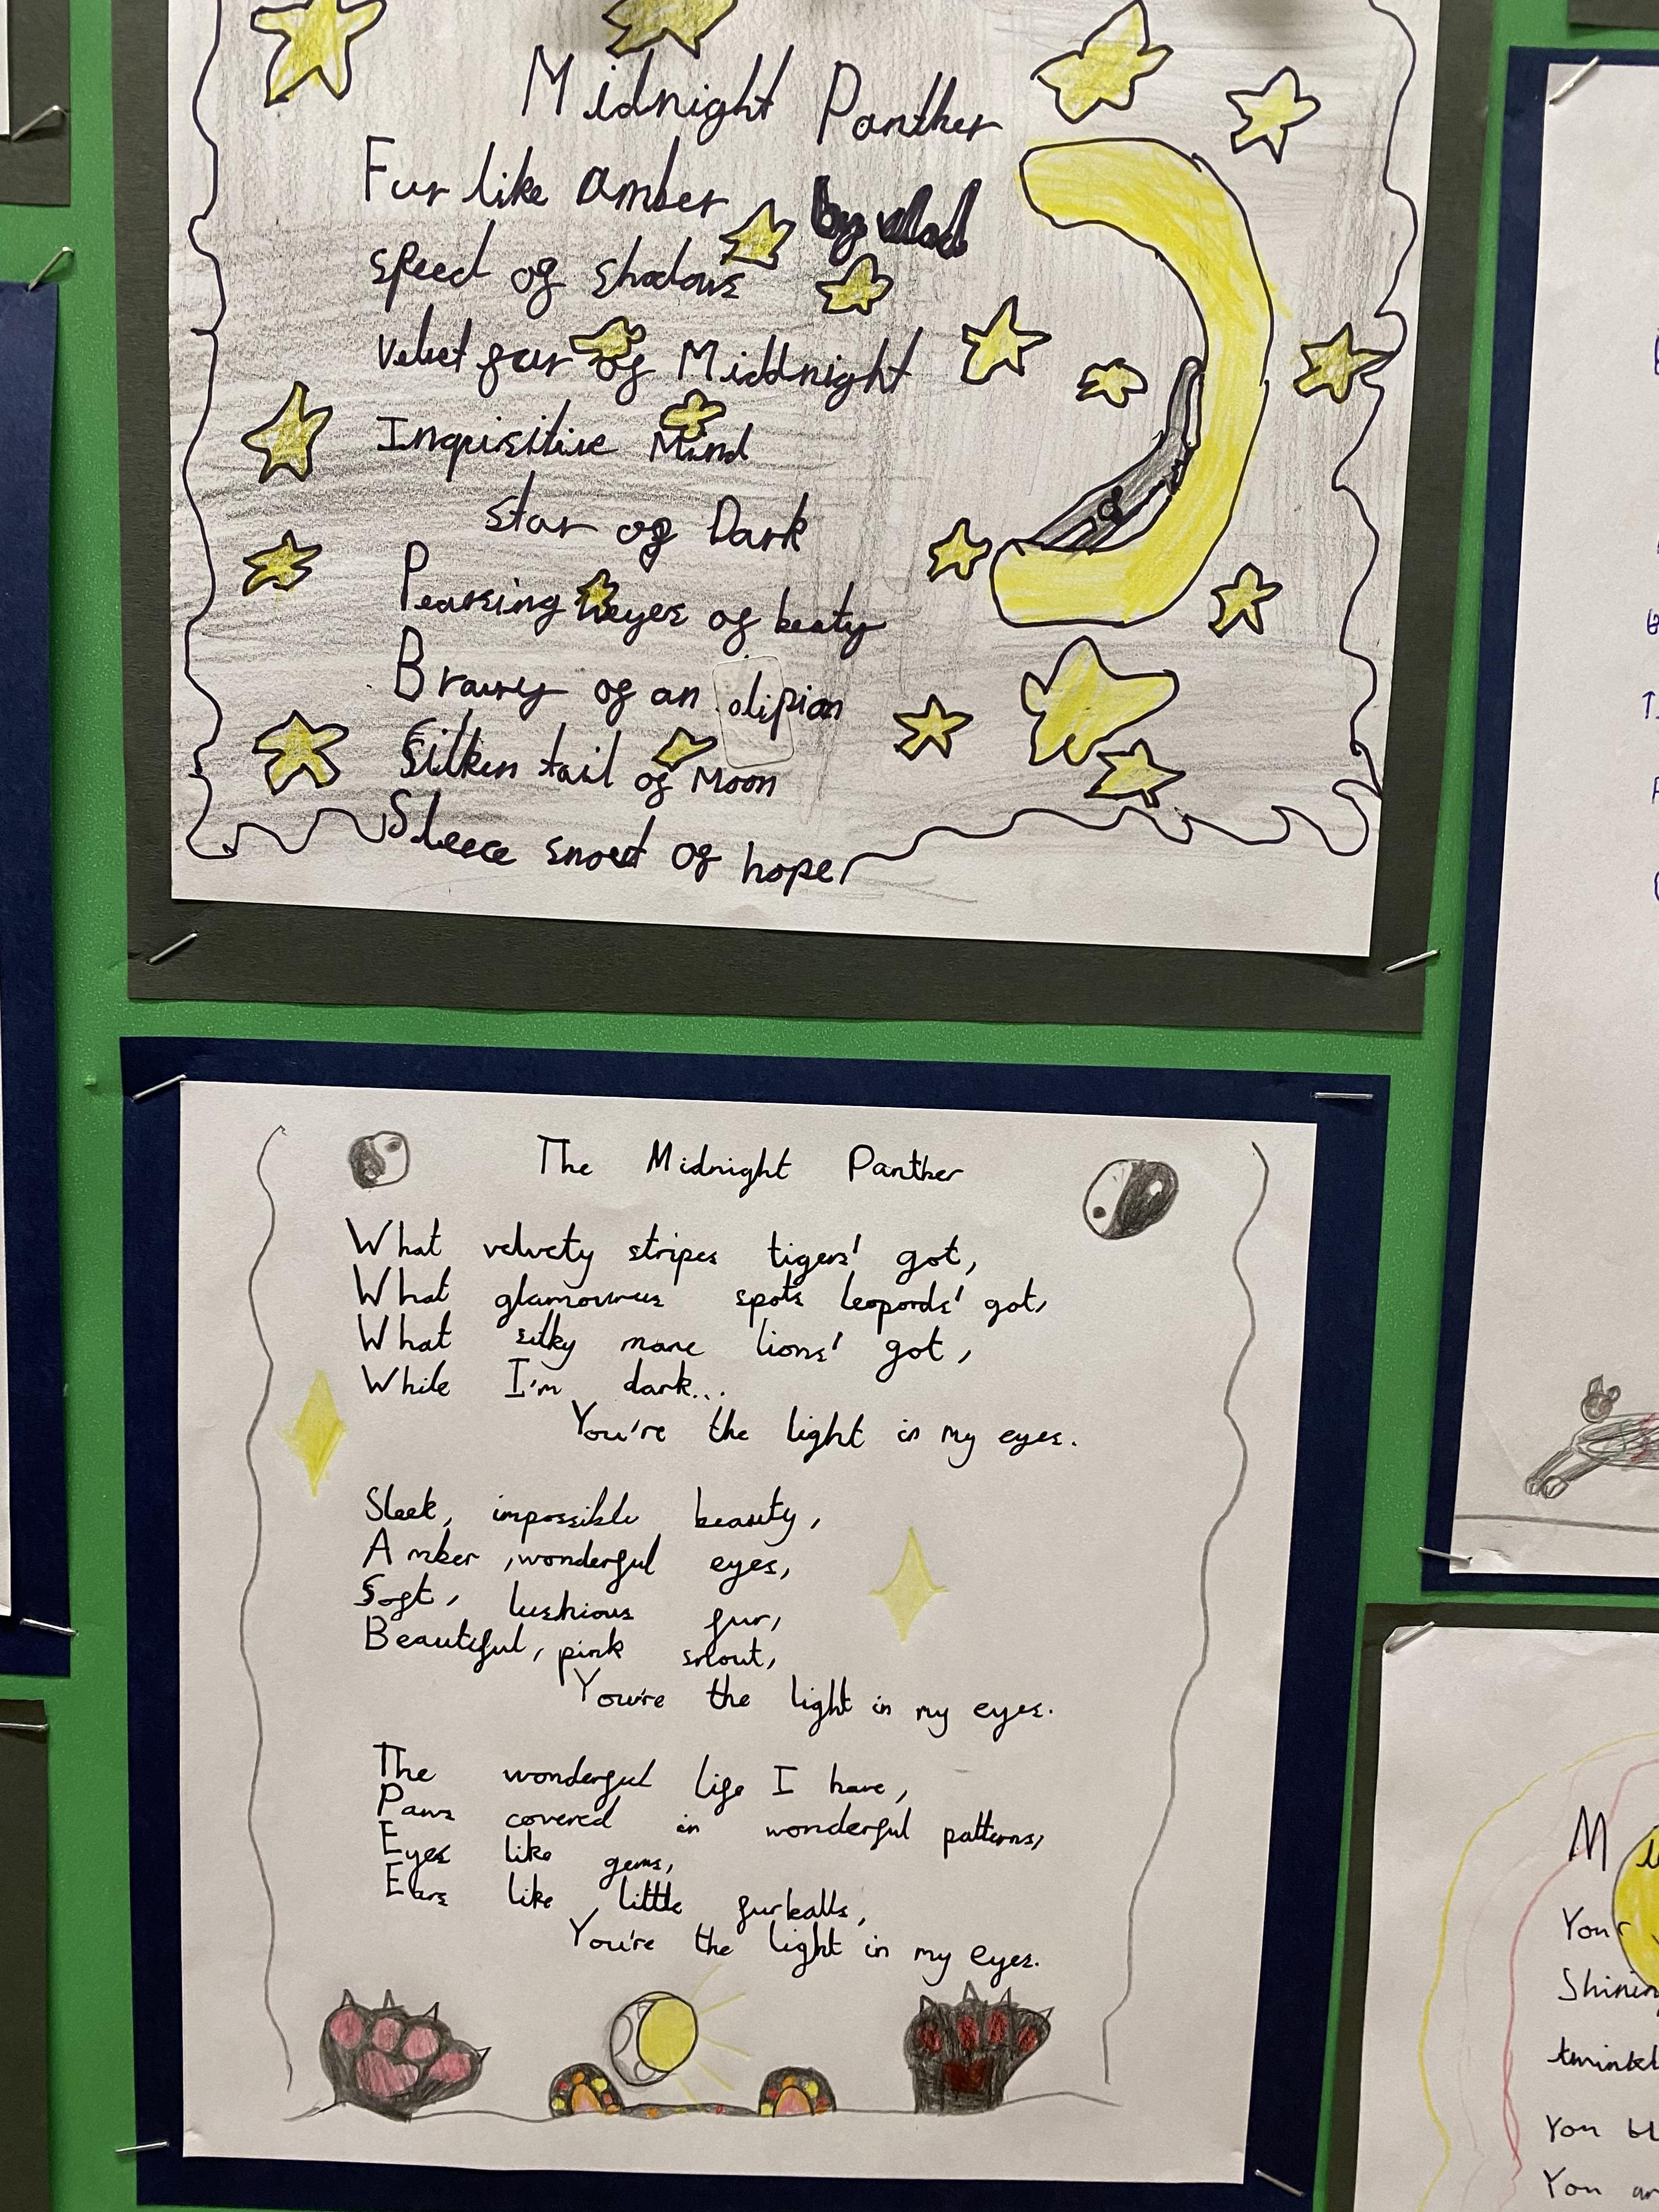 Midnight Panther
by vlad
Fur like amber
speed of shadows
velvet fur of Middnight
Inquisitive Mind
star of Dark
Pearsing eyes of beaty
Brawny of an olipian
Silken tail of Moon
Sleece snout of hope
The Midnight Panther
What velvety stripes tigers' got,
What glamourous spots leopords' got,
What silky mane lions' got,
While I'm dark...
You're the light in my eyes.
Sleek, impossible beauty,
Amber, wonderful eyes,
Soft, lushious fur,
Beautiful, pink snout,
You're the light in my eyes.
The wonderful life I have,
Paws covered in wonderful patterns,
Eyes like gems,
Ears like little furballs,
You're the light in my eyes.
Your
You